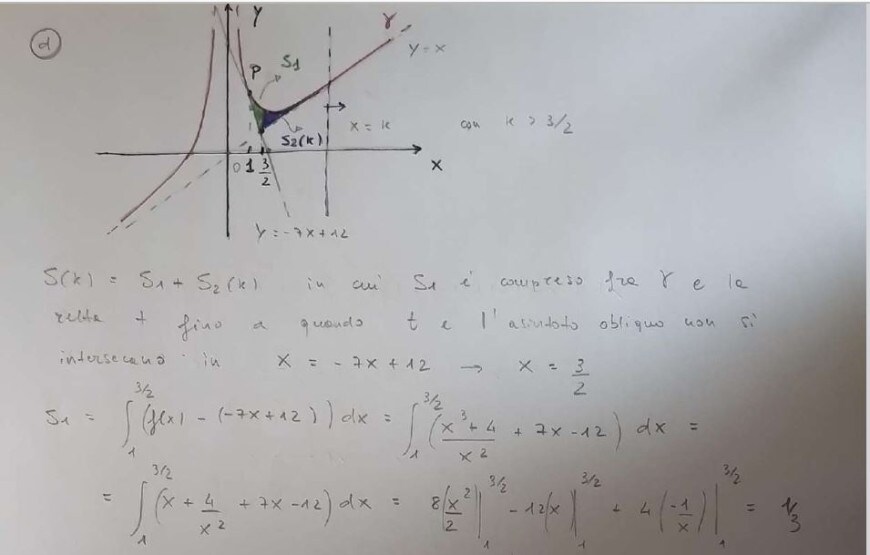 d
y
γ
S1
P
y = x
x = k
con k > 3/2
S2(k)
0 1 3/2
x
y = -7x+12
S(k) = S1 + S2(k) in cui S1 è compreso fra γ e la
retta t fino a quando t e l'asintoto obliquo non si
intersecano in x = -7x+12 → x = 3/2
S1 = ∫₁^{3/2} (f(x) - (-7x+12)) dx = ∫₁^{3/2} (x³+4/x² + 7x-12) dx =
= ∫₁^{3/2} (x + 4/x² + 7x-12) dx = 8(x²/2)|₁^{3/2} - 12(x)|₁^{3/2} + 4(-1/x)|₁^{3/2} = 1/3